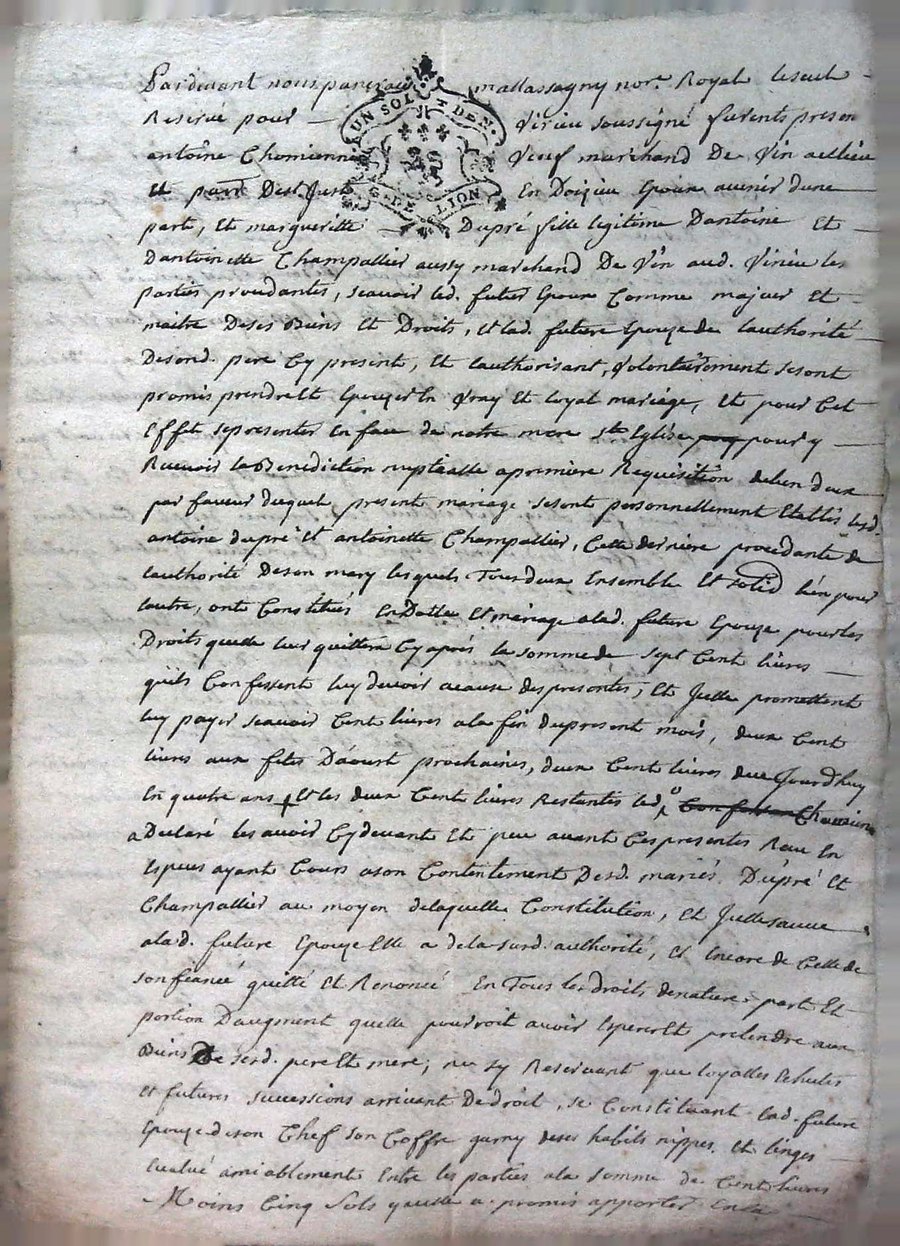 Pardevant nous pancrace mallassagny nore. Royal leseul
Reservé pour Virieu soussigné furents presen
antoine Chomienne Veuf marchand De Vin
et En Doizieu Epoux avenir dune
part, Et margueritte Dupré fille legitime Dantoine Et
Dantoinette Champallier aussy marchand De Vin aud. Virieu les
parties proceedantes, scavoir led. futur Epoux Comme majeur Et
maitre Deses Biens Et Droits, Et lad. future Epouze de lauthorité
Desond. pere Cy present, Et lauthorisant, Volontairement sesont
promis prendre Et Epouzer En Vray Et loyal mariage, Et pour Cet
Effet sepresenter En face de notre mere ste Eglise pour y
Recevoir la Benediction nuptialle apremière Requisition delun deux
par faveur duquel present mariage sesont personnellement Etablis lesd.
antoine dupré Et antoinette Champallier, Cette dernière procedante de
lauthorité Deson mary lesquels Tous deux Ensemble Et solid lun pour
lautre, onts Constitués En Dotte Et mariage alad. future Epouze pour les
Droits quelle leur quittera Cy après la somme de sept Cent livres
quils Confessent luy devoir acause des presentes, Et Jcelle promettent
luy payer scavoir Cent livres ala fin dupresent mois, deux Cent
livres aux fetes Daoust prochaines, deux Cent livres dece Jourdhuy
En quatre ans Et les deux Cent livres Restantes led. Chomienne
a Declaré les avoir Cydevant Et peu avant Cespresentes Receu En
Especes ayant Cours ason Contentement Desd. mariés Dupré Et
Champallier au moyen delaquelle Constitution, Et Jcelle sauve
alad. future Epouze Elle a dela susd. authorité, Et Encore de Celle de
son fiancé quitté Et Renoncé En Tous les droits denature, part Et
portion Daugment quelle pourroit avoir Esperer Et pretendre aux
Biens De sesd. pere Et mere, ne sy Reservant que loyalles Echutes
Et futures successions arrivant De droit, se Constituant lad. future
Epouze deson Chef son Coffre garny deses habits nippes et linges
Evalué amiablement Entre les parties ala somme de Cent livres
Moins Cinq Sols quelle a promis apporter Enla
UN SOL 4 DEN.
G. DE LION